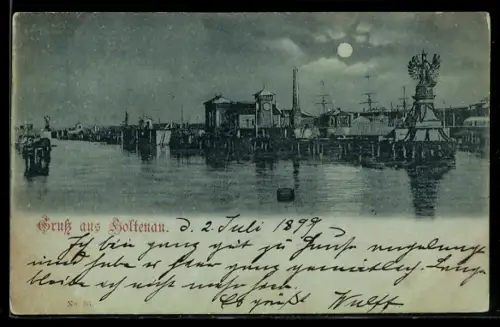 Gruß aus Holtenau. d. 2 Juli 1899
Ich bin ganz gut zu Hause angelangt
und habe es hier ganz gemütlich. Lange
bleibe ich nicht mehr hier.
No 35. Es grüßt Wulff